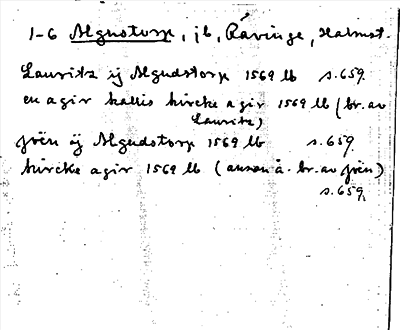 1-6 Algustorp, jb, Rävinge, Halmst.
Lauritz ij Algudstorp 1569 lb s. 659
en agir kallis kircke agir 1569 lb (br. av
Lauritz)
jöen ij Algudstorp 1569 lb s. 659
kircke agir 1569 lb (annan å. br. av jöen)
s. 659